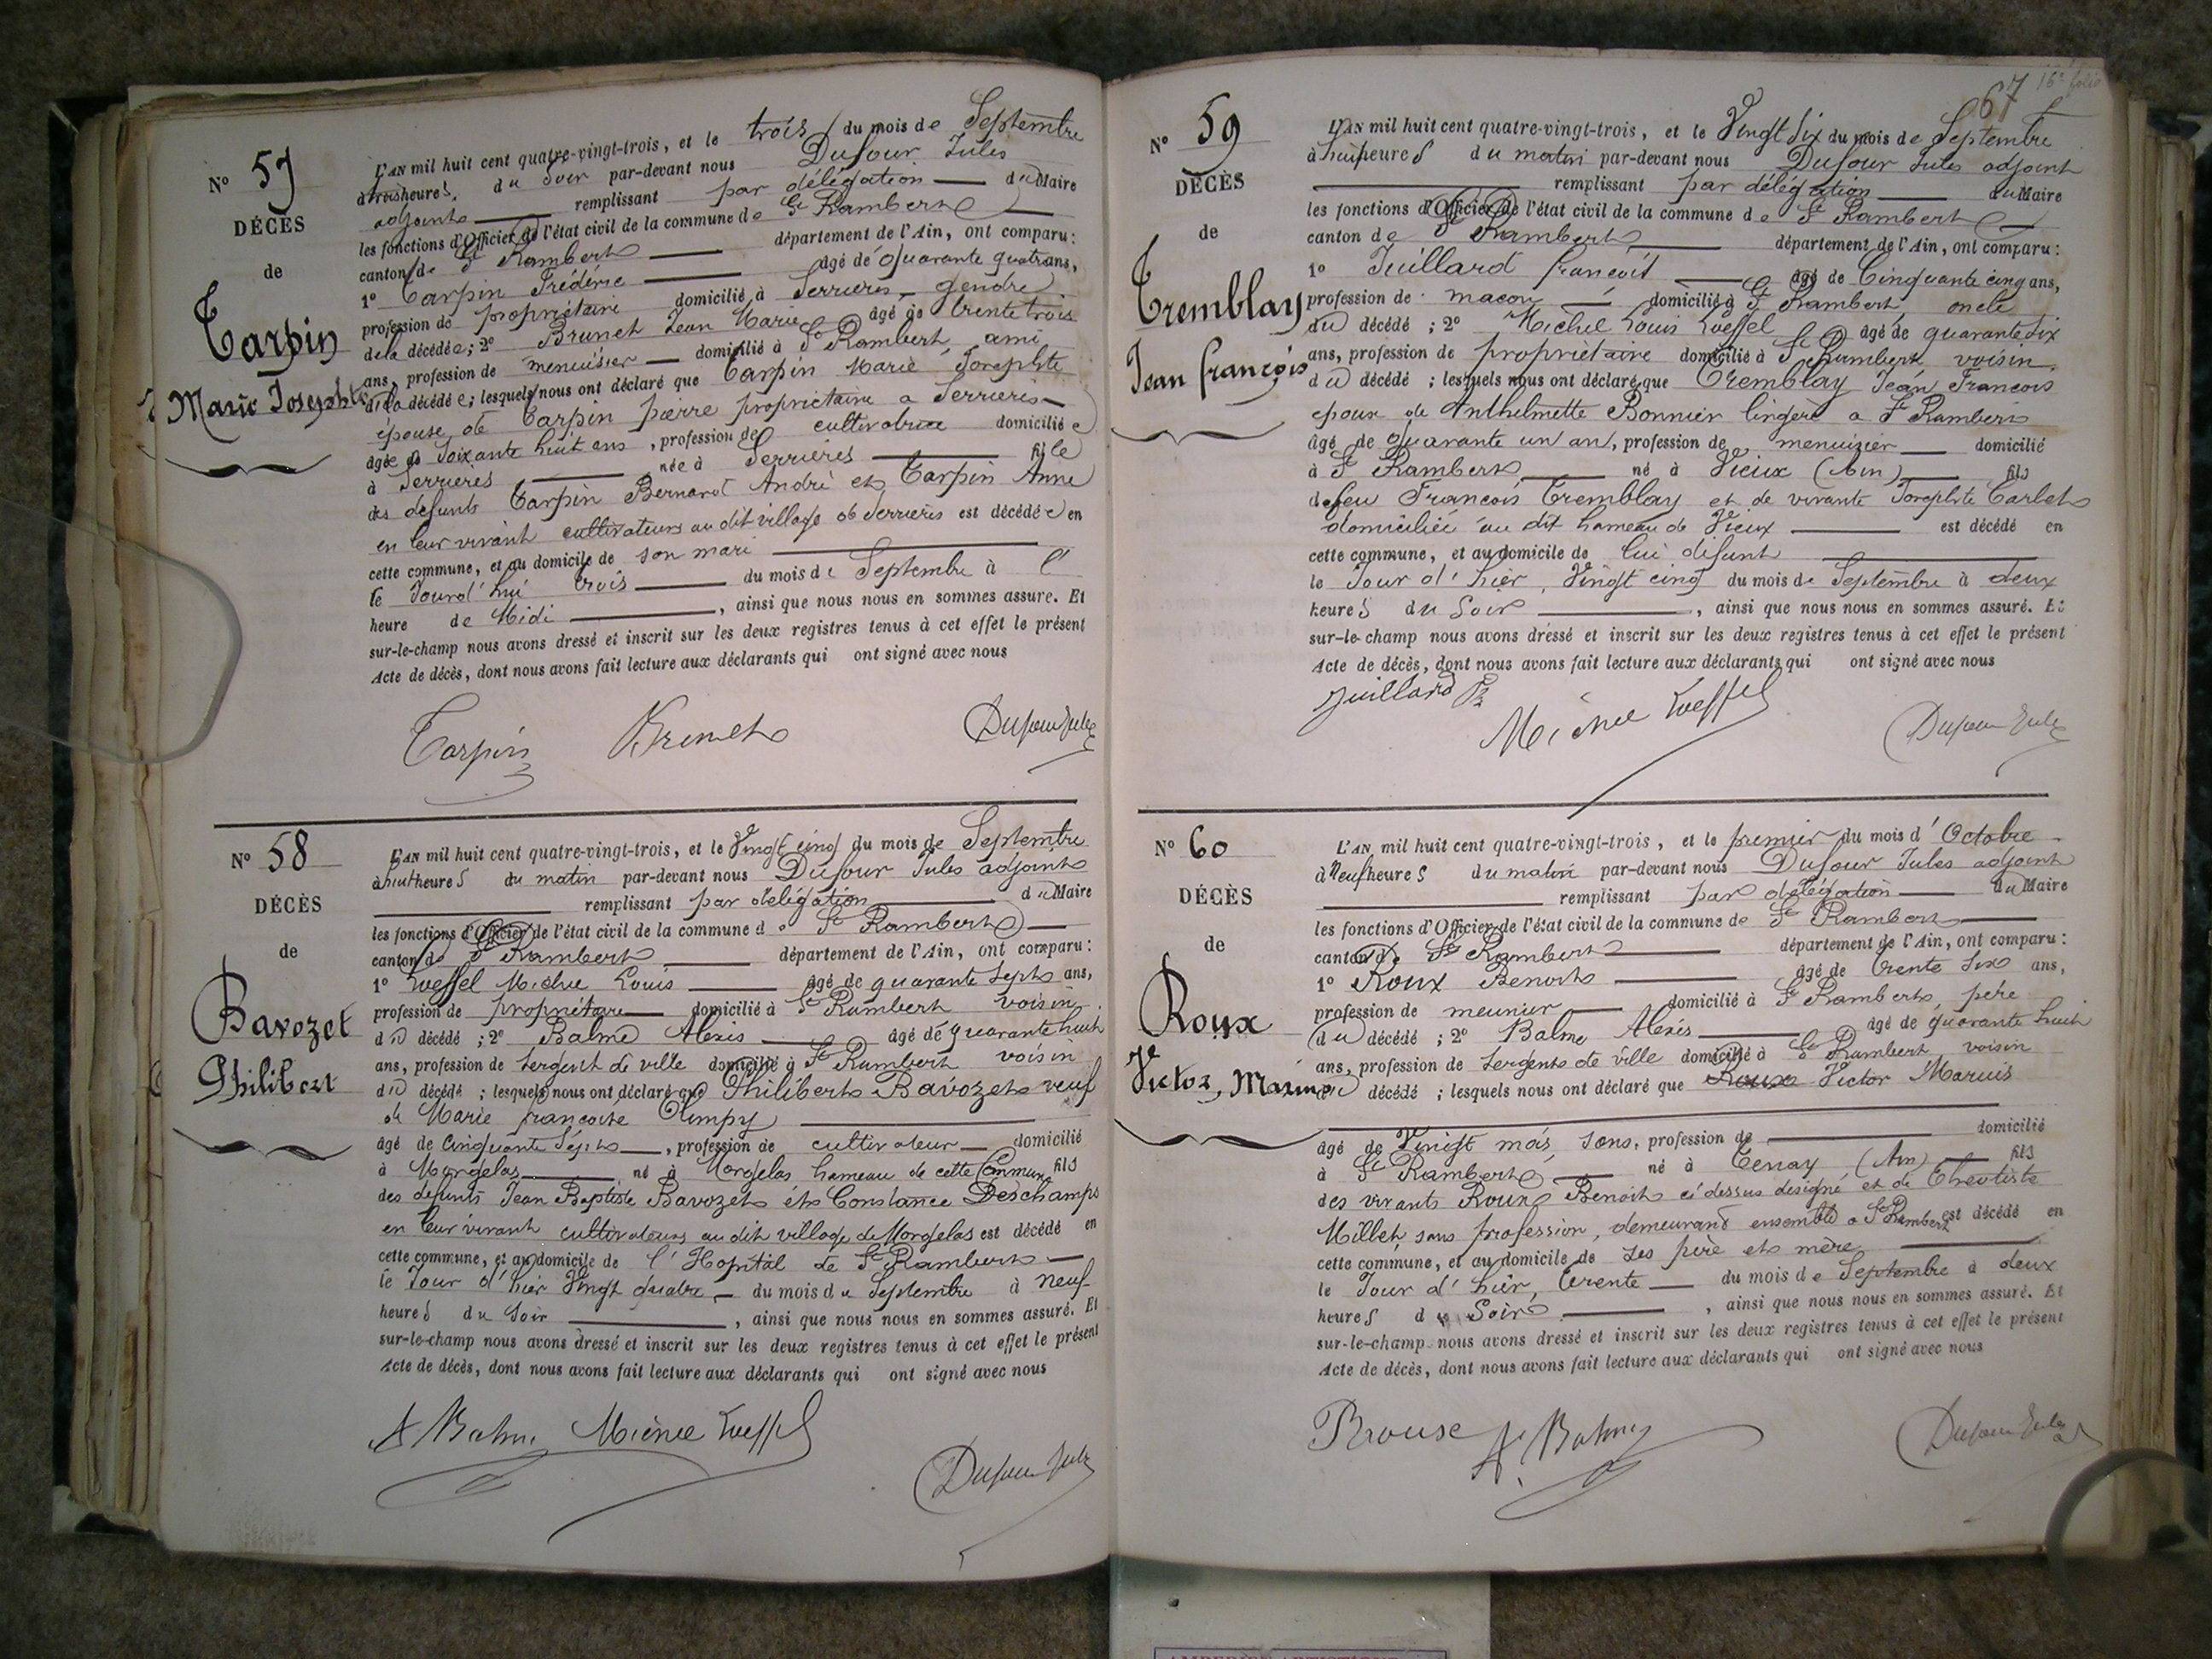 N° 57
DÉCÈS
de
Tarpin
Marie Josephte
L'AN mil huit cent quatre-vingt-trois, et le trois du mois de Septembre
à trois heures du Soir par-devant nous Dufour Jules
adjoint remplissant par délégation du Maire
les fonctions d'Officier de l'état civil de la commune de St Rambert
canton de St Rambert département de l'Ain, ont comparu:
1° Tarpin Frédéric âgé de quarante quatr ans,
profession de propriétaire domicilié à Serrieres, gendre
de la décédée; 2° Brunet Jean Marie âgé de trente trois
ans, profession de menuisier domicilié à St Rambert, ami
de la décédée; lesquels nous ont déclaré que Tarpin Marie Josephte
épouse de Tarpin pierre propriétaire a Serrieres
âgée de Soixante huit ans, profession de cultivatrice domiciliée
à Serrières née à Serrières fille
des defunts Tarpin Bernard André et Tarpin Anne
en leur vivant cultivateurs au dit village de Serrieres est décédée en
cette commune, et au domicile de son mari
le Jourd'hui trois du mois de Septembre à l'
heure de Midi, ainsi que nous nous en sommes assuré. Et
sur-le-champ nous avons dressé et inscrit sur les deux registres tenus à cet effet le présent
Acte de décès, dont nous avons fait lecture aux déclarants qui ont signé avec nous
Tarpin Brunet Dufour Jules
N° 58
DÉCÈS
de
Bavozet
Philibert
L'AN mil huit cent quatre-vingt-trois, et le Vingt cinq du mois de Septembre
à huit heures du matin par-devant nous Dufour Jules adjoint
remplissant par délégation du Maire
les fonctions d'Officier de l'état civil de la commune de St Rambert
canton de St Rambert département de l'Ain, ont comparu:
1° Loeffel Michel Louis âgé de quarante Sept ans,
profession de propriétaire domicilié à St Rambert voisin
du décédé; 2° Balme Alexis âgé de quarante huit
ans, profession de Sergent de ville domicilié à St Rambert voisin
du décédé; lesquels nous ont déclaré que Philibert Bavozet veuf
de Marie françoise Olimpy
âgé de Cinquante Sept, profession de cultivateur domicilié
à Morgelas né à Morgelas hameau de cette Commune fils
des defunts Jean Baptiste Bavozet et Constance Deschamps
en leur vivant cultivateurs au dit village de Morgelas est décédé en
cette commune, et au domicile de l'Hopital de St Rambert
le Jour d'hier Vingt quatre du mois de Septembre à neuf
heures du Soir, ainsi que nous nous en sommes assuré. Et
sur-le-champ nous avons dressé et inscrit sur les deux registres tenus à cet effet le présent
Acte de décès, dont nous avons fait lecture aux déclarants qui ont signé avec nous
A Balme Michel Loeffel
Dufour Jules
67 16e folio
N° 59
DÉCÈS
de
Tremblay
Jean françois
L'AN mil huit cent quatre-vingt-trois, et le Vingt Six du mois de Septembre
à huit heures du matin par-devant nous Dufour Jules adjoint
remplissant par délégation du Maire
les fonctions d'Officier de l'état civil de la commune de St Rambert
canton de St Rambert département de l'Ain, ont comparu:
1° Juillard françois âgé de Cinquante cinq ans,
profession de macon domicilié à St Rambert oncle
du décédé; 2° Michel Louis Loeffel âgé de quarante Six
ans, profession de propriétaire domicilié à St Rambert voisin
du décédé; lesquels nous ont déclaré que Tremblay Jean François
epoux de Anthelmette Bonnier lingère a St Rambert
âgé de quarante un an, profession de menuizier domicilié
à St Rambert né à Vieux (Ain) fils
de feu François Tremblay et de vivante Josephte Carlet
domiciliée au dit hameau de Vieux est décédé en
cette commune, et au domicile de lui défunt
le Jour d'hier, Vingt cinq du mois de Septembre à deux
heures du Soir, ainsi que nous nous en sommes assuré. Et
sur-le-champ nous avons dressé et inscrit sur les deux registres tenus à cet effet le présent
Acte de décès, dont nous avons fait lecture aux déclarants qui ont signé avec nous
Juillard
Michel Loeffel
Dufour Jules
N° 60
DÉCÈS
de
Roux
Victor, Marius
L'AN mil huit cent quatre-vingt-trois, et le premier du mois d'Octobre
à Neuf heures du matin par-devant nous Dufour Jules adjoint
remplissant par délégation du Maire
les fonctions d'Officier de l'état civil de la commune de St Rambert
canton de St Rambert département de l'Ain, ont comparu:
1° Roux Benoit âgé de trente Six ans,
profession de meunier domicilié à St Rambert, père
du décédé; 2° Balme Alexis âgé de quarante huit
ans, profession de Sergent de ville domicilié à St Rambert voisin
du décédé; lesquels nous ont déclaré que Roux Victor Marius
âgé de Vingt mois, Sans, profession de domicilié
à St Rambert né à Tenay (Ain) fils
des vivants Roux Benoit ci dessus désigné et de Theotiste
Millet sans profession, demeurant ensemble a St Rambert est décédé en
cette commune, et au domicile de ses père et mère
le Jour d'hier, trente du mois de Septembre à deux
heures du Soir, ainsi que nous nous en sommes assuré. Et
sur-le-champ nous avons dressé et inscrit sur les deux registres tenus à cet effet le présent
Acte de décès, dont nous avons fait lecture aux déclarants qui ont signé avec nous
Brouse A. Balme Dufour Jules